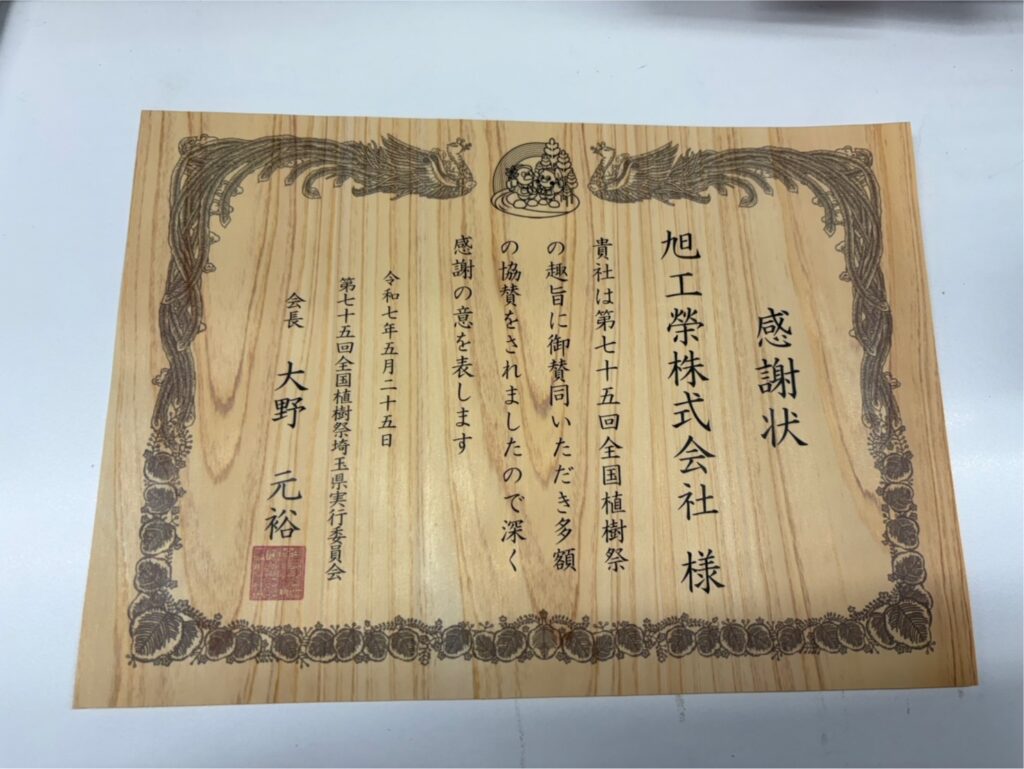 感謝状
旭工榮株式会社 様
貴社は第七十五回全国植樹祭
の趣旨に御賛同いただき多額
の協賛をされましたので深く
感謝の意を表します
令和七年五月二十五日
第七十五回全国植樹祭埼玉県実行委員会
会長 大野 元裕